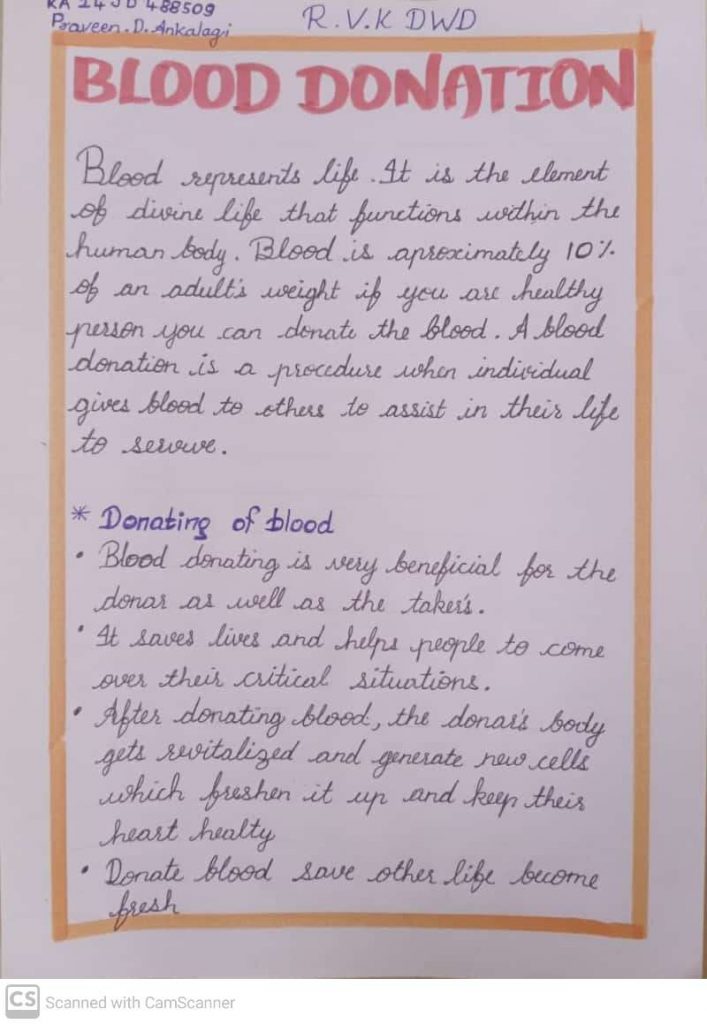 KA 14 JD 488509
Praveen.D.Ankalagi
R.V.K DWD
BLOOD DONATION
Blood represents life. It is the element
of divine life that functions within the
human body. Blood is aproximately 10%
of an adult's weight if you are healthy
person you can donate the blood. A blood
donation is a procedure when individual
gives blood to others to assist in their life
to servive.
* Donating of blood
• Blood donating is very beneficial for the
donar as well as the taker's.
• It saves lives and helps people to come
over their critical situations.
• After donating blood, the donar's body
gets revitalized and generate new cells
which freshen it up and keep their
heart healty
• Donate blood save other life become
fresh
CS Scanned with CamScanner